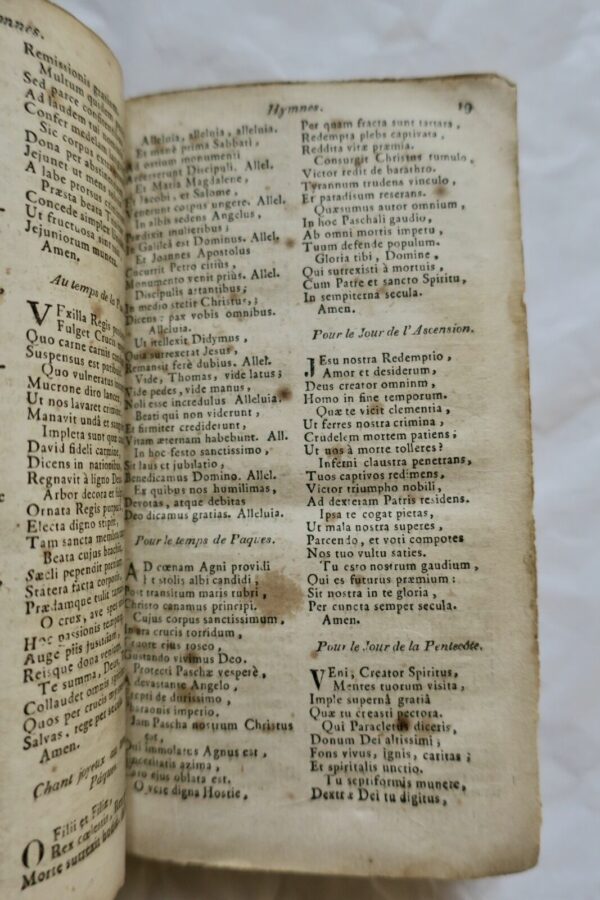 mnes.
Remissionis gratiam
Multum quidem
Sed parce
Ad laudem tui
Confer medelam
Sic corpus
Dona per
Jejunet ut mens
A labe prorsus
Præsta beata
Concede simplex
Ut fructuosa sint
Jejuniorum munera.
Amen.
Au temps de la
VExilla Regis
Fulget Crucis
Quo carne carnis
Suspensus est
Quo vulneratus
Mucrone diro
Ut nos lavaret
Manavit undâ et
Impleta sunt quæ
David fideli carmine,
Dicens in nationibus,
Regnavit à ligno Deus
Arbor decora et
Ornata Regis
Electa digno stipite,
Tam sancta membra
Beata cujus brachiis,
Sæcli pependit
Statera facta corporis,
Prædamque tulit
O crux, ave
Hoc passionis
Auge piis justitiam,
Reisque dona
Te summa, Deus
Collaudet omnis
Quos per crucis
Salvas, rege per
Amen.
Chant joyeux
Pâques.
O Filii et Filiæ,
Rex cœlestis,
Morte surrexit
Hymnes. 19
Alleluia, alleluia, alleluia.
Et mane prima Sabbati,
Ad ostium monumenti
Accesserunt Discipuli. Allel.
Et Maria Magdalene,
Et Jacobi, et Salome,
Venerunt corpus ungere. Allel.
In albis sedens Angelus,
Prædixit mulieribus;
In Galileâ est Dominus. Allel.
Et Joannes Apostolus
Cucurrit Petro citiùs,
Monumento venit priùs. Allel.
Discipulis astantibus;
In medio stetit Christus,;
Dicens: pax vobis omnibus.
Alleluia.
Ut intellexit Didymus,
Quia surrexerat Jesus,
Remansit ferè dubius. Allel.
Vide, Thomas, vide latus;
Vide pedes, vide manus,
Noli esse incredulus Alleluia.
Beati qui non viderunt,
Et firmiter crediderunt,
Vitam æternam habebunt. All.
In hoc festo sanctissimo,
Sit laus et jubilatio,
Benedicamus Domino. Allel.
Ex quibus nos humilimas,
Devotas, atque debitas
Deo dicamus gratias. Alleluia.
Pour le temps de Paques.
AD cœnam Agni providi
Et stolis albi candidi,
Post transitum maris rubri,
Christo canamus principi.
Cujus corpus sanctissimum,
In ara crucis torridum,
Cruore ejus roseo,
Gustando vivimus Deo.
Protecti Paschæ vesperè,
A devastante Angelo,
Erepti de durissimo
Pharaonis imperio.
Jam Pascha nostrum Christus
est,
Qui immolatus Agnus est,
Sinceritatis azima,
Caro ejus oblata est.
O verè digna Hostie,
Per quam fracta sunt tartara,
Redempta plebs captivata,
Reddita vitæ præmia.
Consurgit Christus tumulo,
Victor redit de barathro.
Tyrannum trudens vinculo,
Et paradisum reserans.
Quæsumus autor omnium,
In hoc Paschali gaudio,
Ab omni mortis impetu,
Tuum defende populum.
Gloria tibi, Domine,
Qui surrexisti à mortuis,
Cum Patre et sancto Spiritu,
In sempiterna secula.
Amen.
Pour le Jour de l'Ascension.
JEsu nostra Redemptio,
Amor et desiderum,
Deus creator omninm,
Homo in fine temporum.
Quæ te vicit clementia,
Ut ferres nostra crimina,
Crudelem mortem patiens;
Ut nos à morte tolleres?
Inferni claustra penetrans,
Tuos captivos redimens,
Victor triumpho nobili,
Ad dexteram Patris residens.
Ipsa te cogat pietas,
Ut mala nostra superes,
Parcendo, et voti compotes
Nos tuo vultu saties.
Tu esto nostrum gaudium,
Qui es futurus præmium:
Sit nostra in te gloria,
Per cuncta semper secula.
Amen.
Pour le Jour de la Pentecôte.
VEni, Creator Spiritus,
Mentes tuorum visita,
Imple supernâ gratiâ
Quæ tu creasti pectora.
Qui Paracletus diceris,
Donum Dei altissimi;
Fons vivus, ignis, caritas;
Et spiritalis unctio.
Tu septiformis munere,
Dextræ Dei tu digitus,